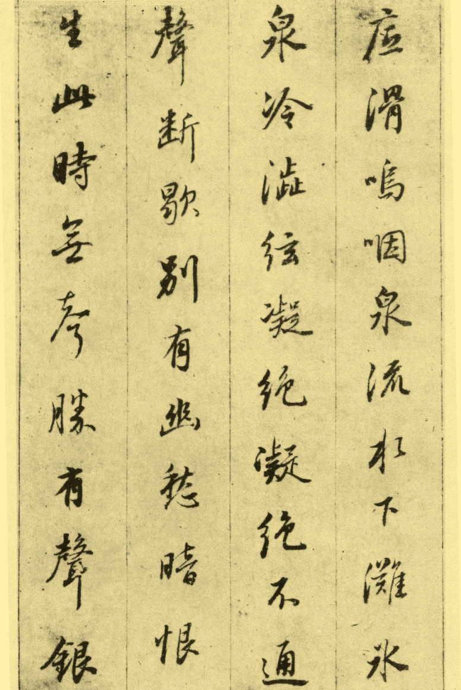 底滑嗚咽泉流水下灘氷
泉冷澁絃凝絶凝絶不通
聲断歇別有幽愁暗恨
生此時無声勝有聲銀